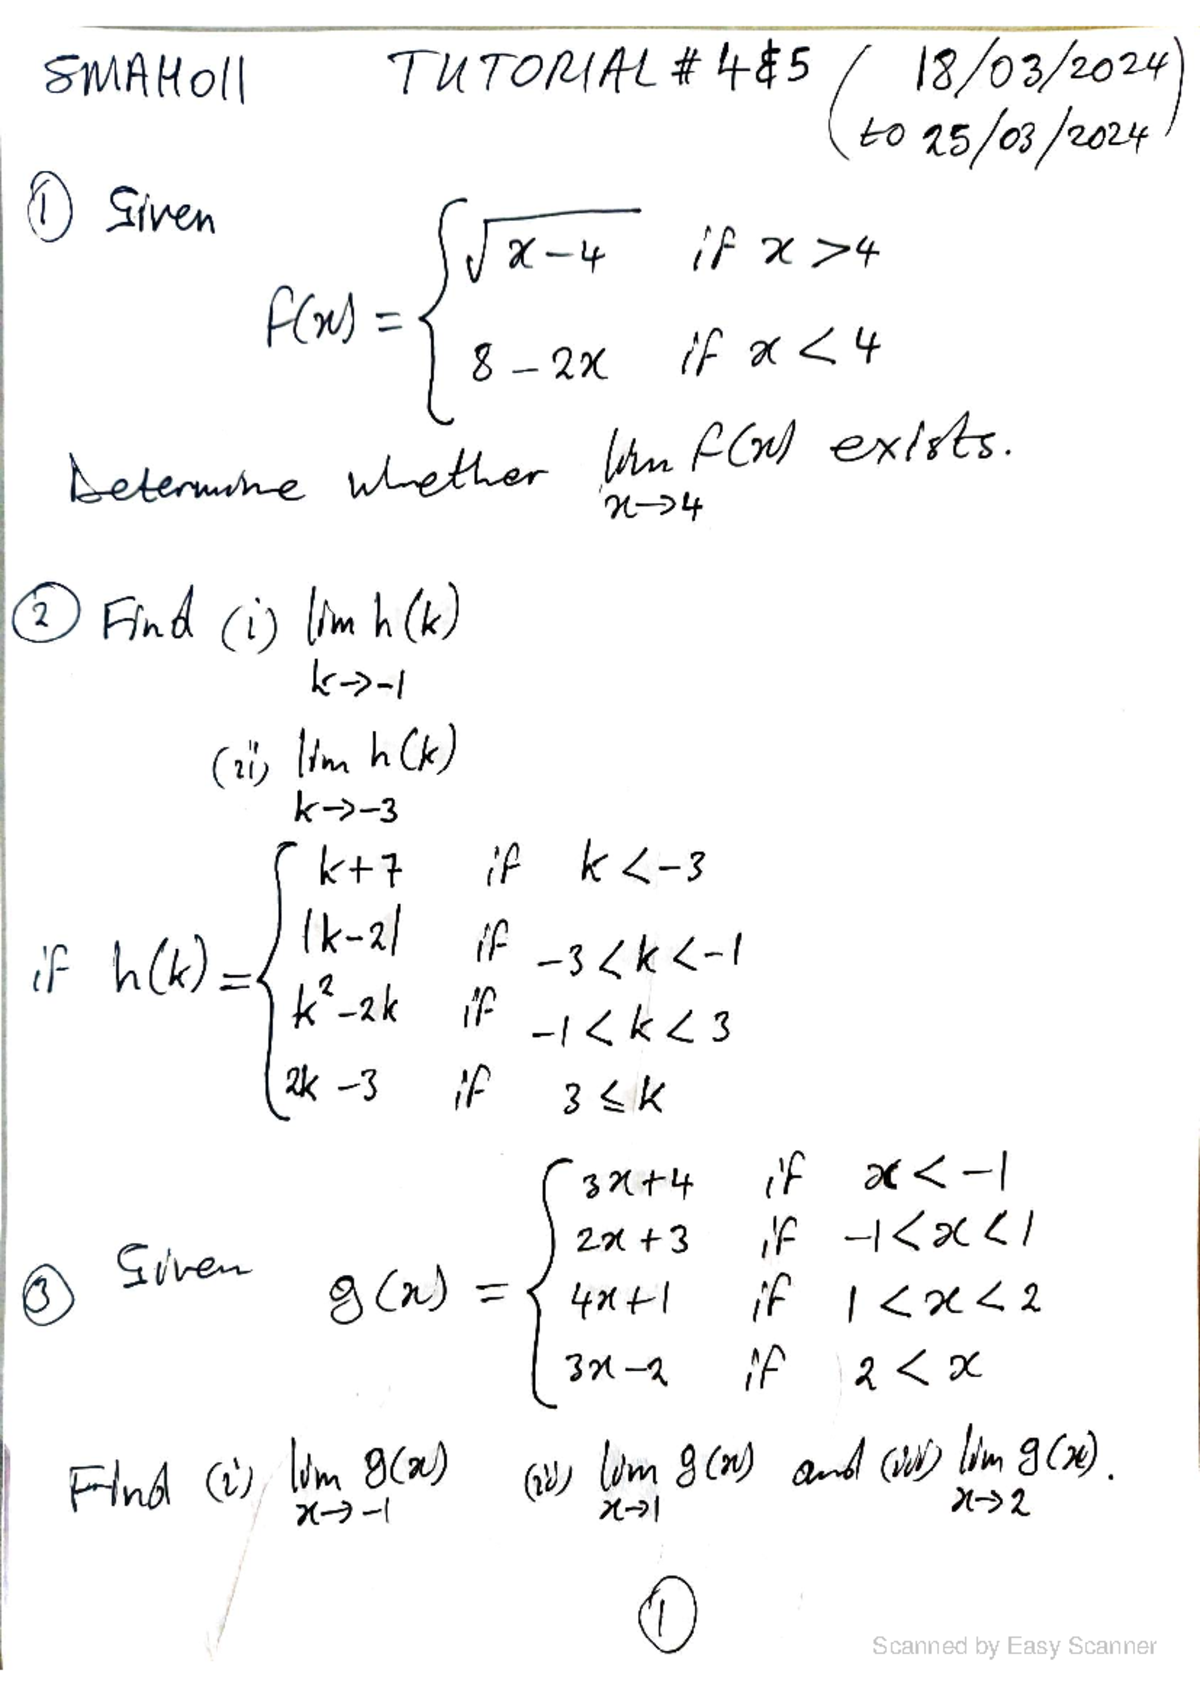 SMAH011 TUTORIAL # 4&5 ( 18/03/2024
to 25/03/2024 )
① Given
f(x) = { √(x-4) if x > 4
8 - 2x if x < 4
Determine whether lim f(x) exists.
x→4
② Find (i) lim h(k)
k→-1
(ii) lim h(k)
k→-3
if h(k) = { k+7 if k < -3
|k-2| if -3 < k < -1
k²-2k if -1 < k < 3
2k-3 if 3 ≤ k
③ Given g(x) = { 3x+4 if x < -1
2x+3 if -1 < x < 1
4x+1 if 1 < x < 2
3x-2 if 2 < x
Find (i) lim g(x) (ii) lim g(x) and (iii) lim g(x).
x→-1 x→1 x→2
①
Scanned by Easy Scanner